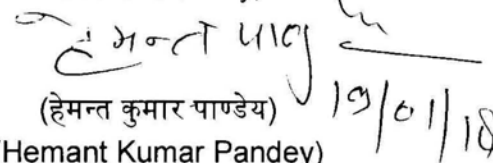 हेमन्त पाण्डे
19/01/18
(हेमन्त कुमार पाण्डेय)
(Hemant Kumar Pandey)